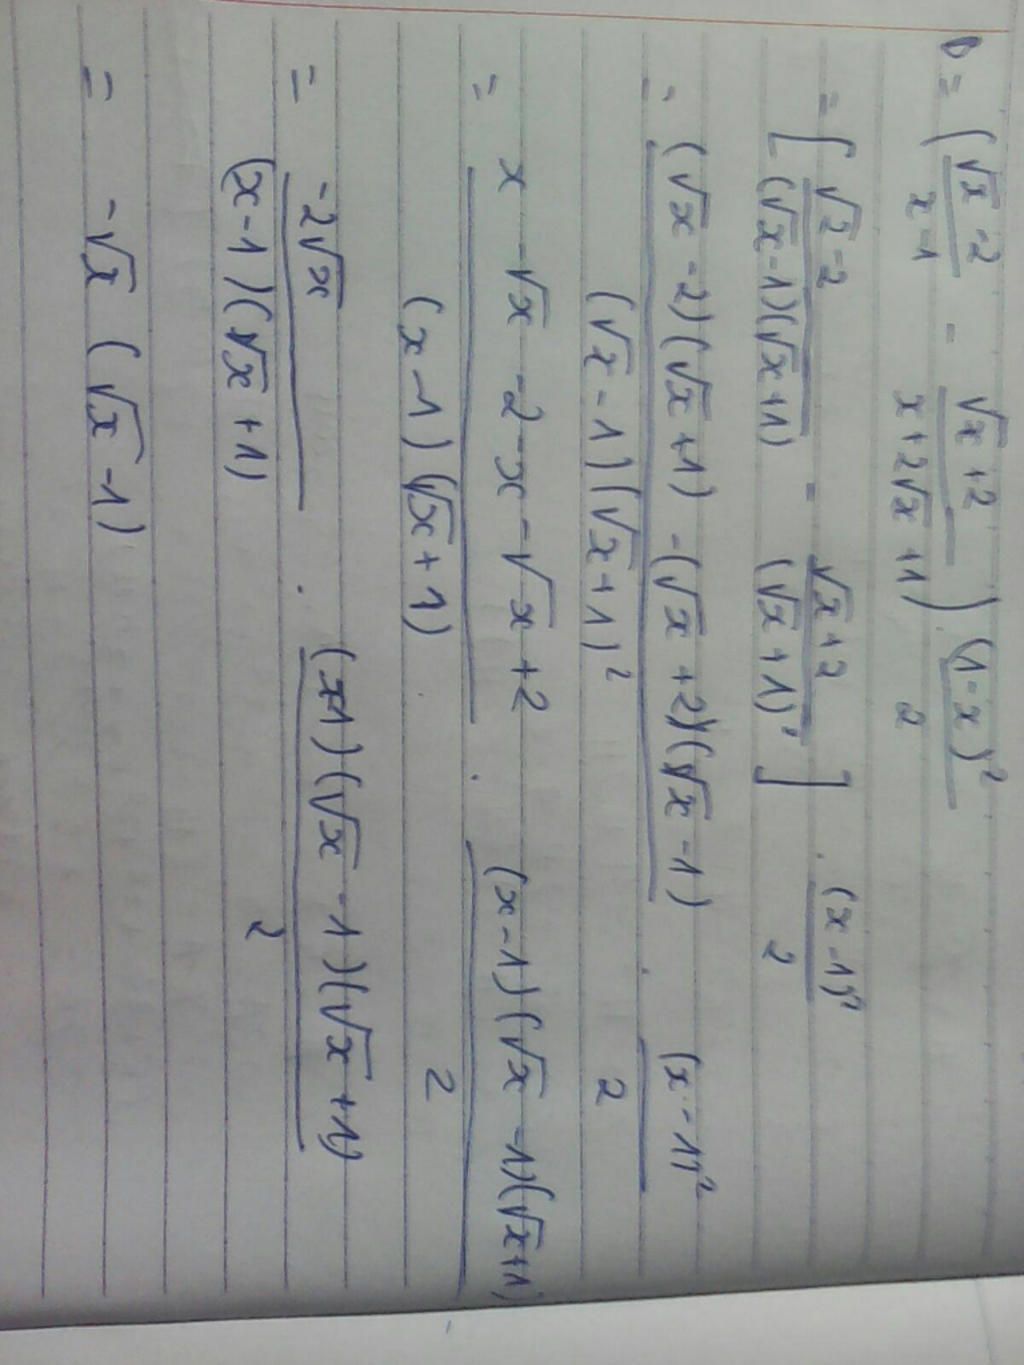 D = ( (√x - 2)/(x - 1) - (√x + 2)/(x + 2√x + 1) ) . (1 - x)²/2
= [ (√x - 2)/((√x - 1)(√x + 1)) - (√x + 2)/(√x + 1)² ] . (x - 1)²/2
= ((√x - 2)(√x + 1) - (√x + 2)(√x - 1))/((√x - 1)(√x + 1)²) . (x - 1)²/2
= (x - √x - 2 - x - √x + 2)/((x - 1)(√x + 1)) . (x - 1)(√x - 1)(√x + 1)/2
= -2√x/((x - 1)(√x + 1)) . (x - 1)(√x - 1)(√x + 1)/2
= -√x (√x - 1)